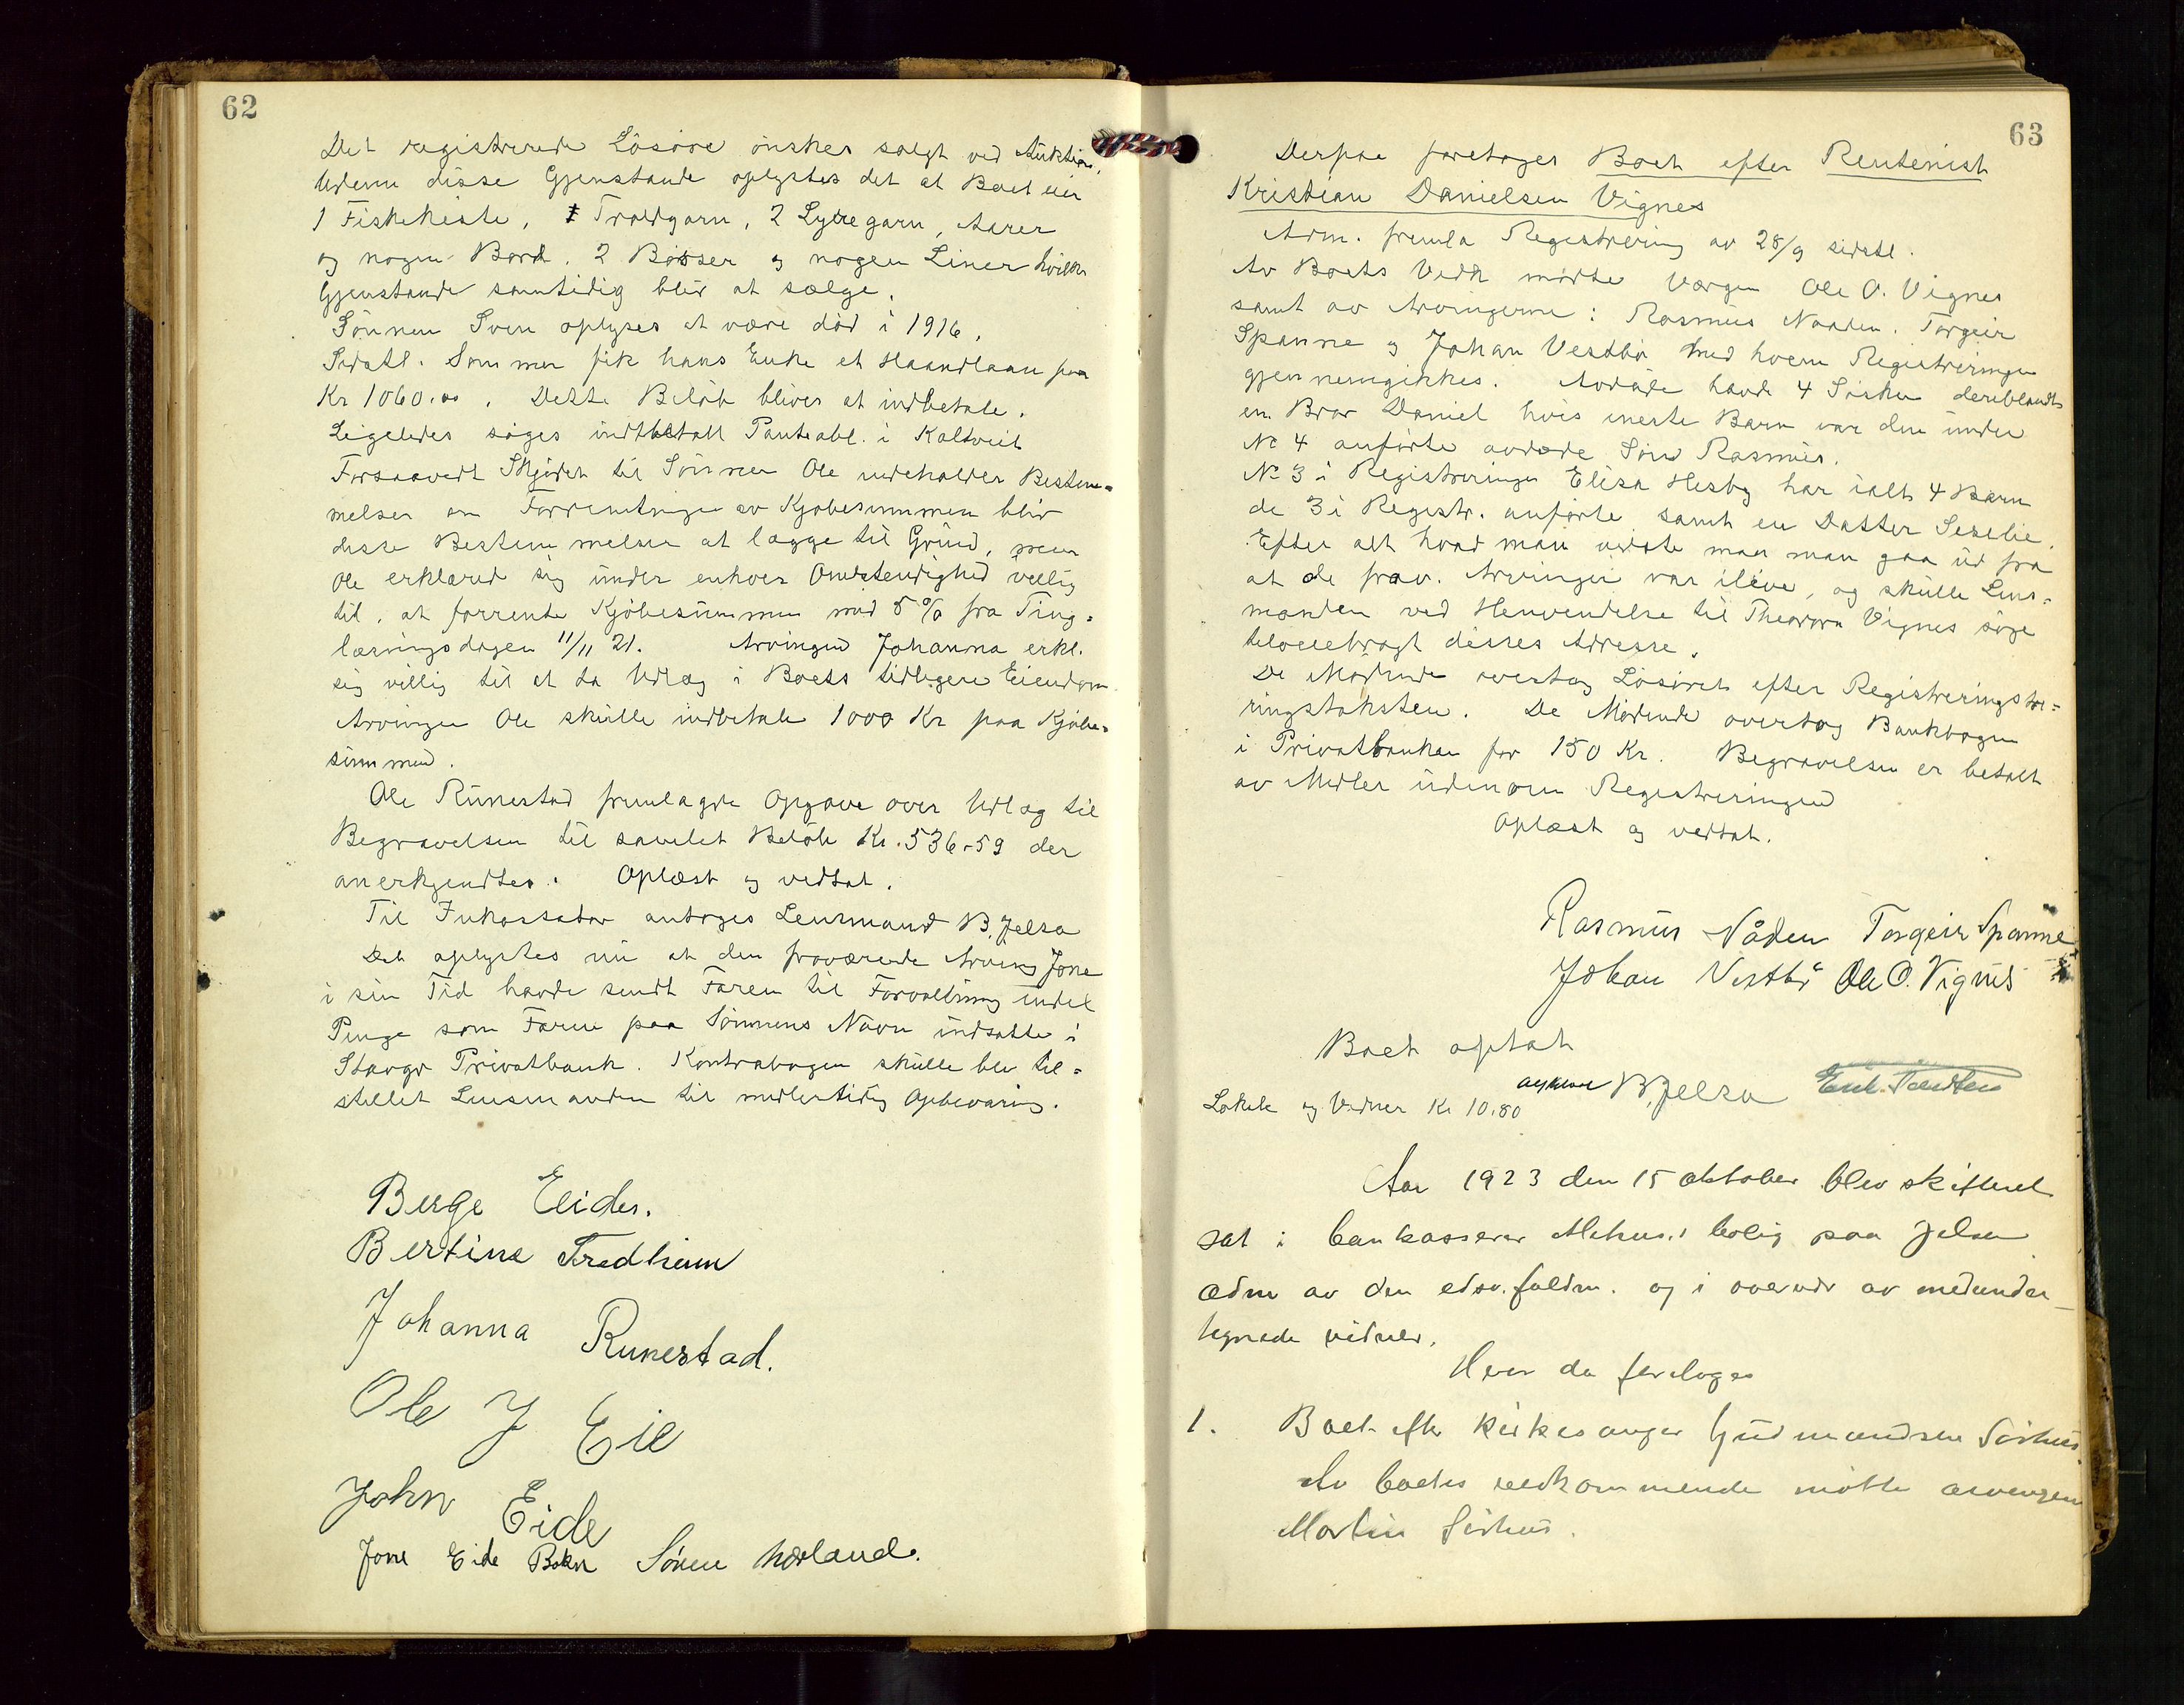 62
Det registrerede Løsøre ønskes solgt ved Auktion.
Udenu disse Gjenstande oplystes det at Boet eier
1 Fiskekiste, 1 Troldgarn, 2 Lyregarn, Aarer
og nogen Bord. 2 Bøsser og nogen Liner hvilke
Gjenstande samtidig blir at sælge.
Sønnen Sven oplyses at være død i 1916.
Sidstl. Sommer fik hans Enke et Haandlaan paa
Kr 1060.00. Dette Beløb bliver at indbetale.
Ligeledes søges indbetalt Panteobl. i Kaltveit
Forsaavidt Skjødet til Sønnen Ole indeholder Bestem=
melser om Forrentninge av Kjøbesummen blir
disse Bestemmelser at lægge til Grund, men
Ole erklærede sig under enhver Omstendighed villig
til, at forrente Kjøbesummen med 5% fra Ting=
læsningsdagen 11/11 21. Arvingen Johanna erkl.
sig villig til at ta Udlæg i Boets tidligere Eiendom
Arvingen Ole skulle indbetale 1000 Kr paa Kjøbe=
summen.
Ole Runestad fremlagde Opgave over Udlæg til
Begravelsen til samlet Beløb Kr. 536.59 der
anerkjendtes. Oplæst og vedtat.
Til Inkassator antoges Lensmand B. Jelsa
Det oplystes nu at den fraværende Arving Jone
i sin Tid havde sendt Faren til Forvaltning endel
Penge som Faren paa Sønnens Navn indsatte i
Stavgr Privatbank. Kontrabogen skulle bli til=
stillet Lensmanden til midlertidig Opbevaring.
Berge Eider.
Bertine Fredheim
Johanna Runestad.
Ole J Eie
John Eide
Jone Eide Bokn Sören Nærland.
63
Derpaa foretoges Boet efter Rentenist
Kristian Danielsen Vignes
Adm. fremla Registrering av 28/9 sidstl.
Av Boets Vedk mødte Værgen Ole O. Vignes
samt av Arvingerne: Rasmus Naaden. Torgeir
Spanne og Johan Vestbø med hvem Registreringen
gjennemgikkes. Avdøde havde 4 Søsken deriblandt
en Bror Daniel hvis eneste Barn var den under
No 4 anførte avdøde Søn Rasmus.
No 3 i Registreringen Elisa Hesby har ialt 4 Barn
de 3 i Registr. anførte samt en Datter Seselie.
Efter alt hvad man vidste maa man gaa ud fra
at de frav. Arvinger var ilive, og skulle Lens=
manden ved Henvendelse til Theodora Vignes søge
tilveiebragt disses Adresse.
De Mødende overtog Løsøret efter Registreringstre=
ringstaksten. De Mødende overtog Bankbogen
i Privatbanken for 150 Kr. Begravelsen er betalt
av Midler udenom Registreringen
Oplæst og vedtat.
Rasmus Nåden Torgeir Spanne
Johan Vestbø Ole O. Vignes
Boet optat
B. Jelsa
Lokale og Vidner Kr 10.80
Aar 1923 den 15 oktober blev skifteret
sat i bankasserer Mehus's bolig paa Jelsa
adm av den edsv. fuldm. og i overvær av medunder_
tegnede vidner.
Hvor da foretoges
1. Boet efter kirkesanger Gudmundsen Sørhus.
Av boets vedkommende mötte arvingen
Martin Sørhus.